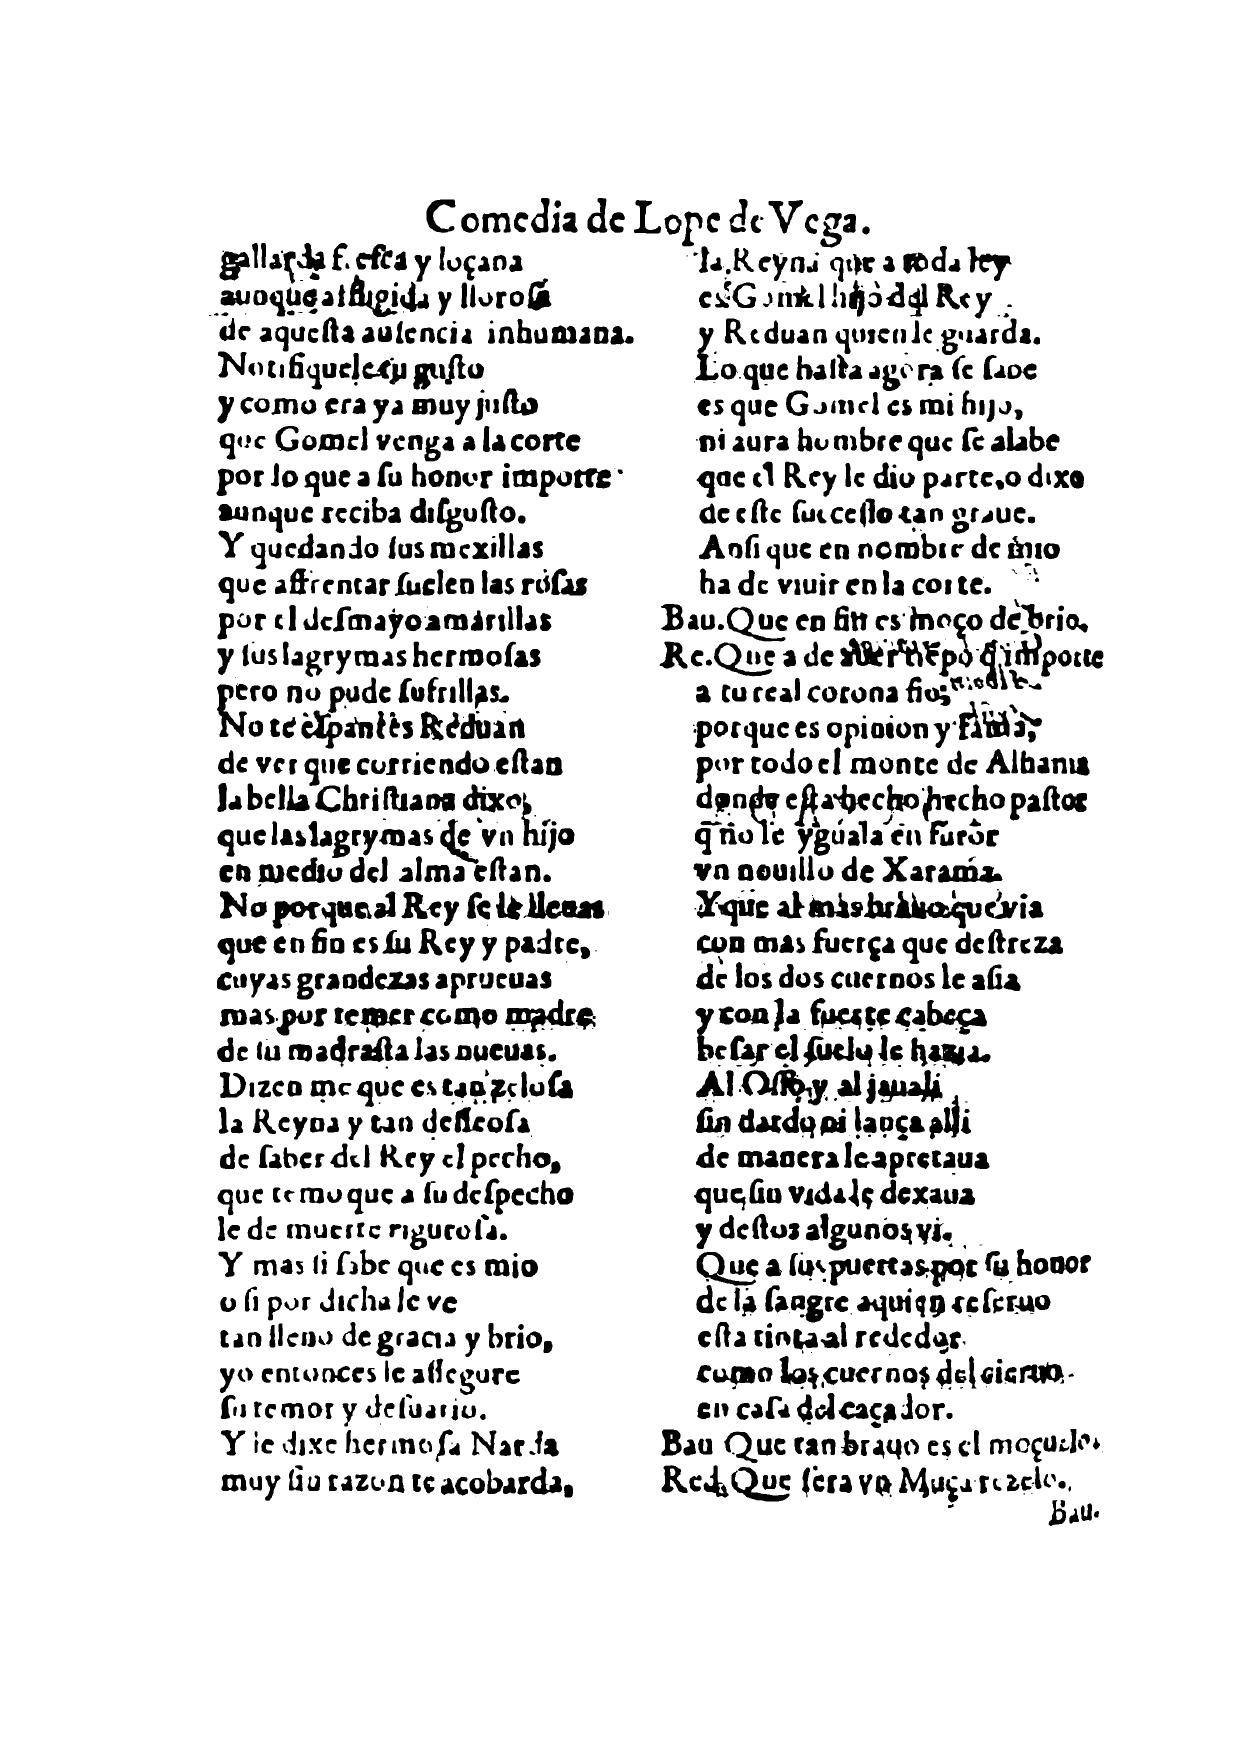 Comedia de Lope de Vega.
gallarda f. esca y loçana
aunque afligida y llorosa
de aquesta ausencia inhumana.
Notifiquele tu gusto
y como era ya muy justo
que Gomel venga a la corte
por lo que a su honor importe
aunque reciba disgusto.
Y quedando sus mexillas
que affrentar suelen las rosas
por el desmayo amarillas
y sus lagrymas hermosas
pero no pude sufrillas.
No te espantes Reduan
de ver que corriendo estan
la bella Christiana dixo,
que las lagrymas de vn hijo
en medio del alma estan.
No porque al Rey se le lleuas
que en fin es su Rey y padre,
cuyas grandezas aprueuas
mas por temer como madre
de su madrasta las nueuas.
Dizen me que es tan zelosa
la Reyna y tan desseosa
de saber del Rey el pecho,
que temo que a su despecho
le de muerte rigurosa.
Y mas si sabe que es mio
o si por dicha le ve
tan lleno de gracia y brio,
yo entonces le assegure
su temor y desuario.
Y le dixe hermosa Narda
muy sin razon te acobarda,
la Reyna que a toda ley
es Gomel hijo del Rey
y Reduan quien le guarda.
Lo que hasta agora se sabe
es que Gomel es mi hijo,
ni aura hombre que se alabe
que el Rey le dio parte, o dixo
de este sucesso tan graue.
Ansi que en nombre de mio
ha de viuir en la corte.
Bau. Que en fin es moço de brio.
Re. Que a de auer tiẽpo q̃ importe
a tu real corona fio;
porque es opinion y fama,
por todo el monte de Albania
donde esta hecho hecho pastor
q̃ no le yguala en furor
vn nouillo de Xarama.
Y que al mas brauo que via
con mas fuerça que destreza
de los dos cuernos le asia
y con la fuerte cabeça
besar el suelo le hazia.
Al Osso, y al jauali
sin dardo ni lança alli
de manera le apretaua
que sin vida le dexaua
y destos algunos vi.
Que a sus puertas por su honor
de la sangre a quien reseruo
esta tinta al rededor
como los cuernos del cieruo
en casa del caçador.
Bau Que tan brauo es el moçuelo.
Red. Que sera vn Muça rezelo.
Bau.